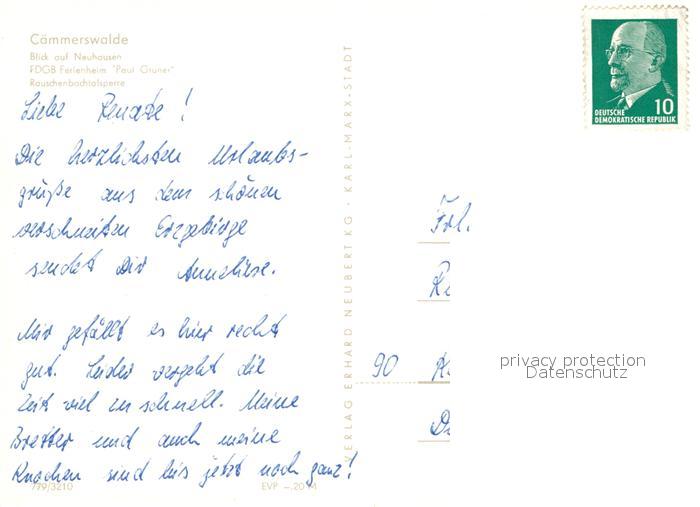 Cämmerswalde
Blick auf Neuhausen
FDGB Ferienheim "Paul Gruner"
Rauschenbachtalsperre
Liebe Renate!
Die herzlichsten Urlaubs-
grüße aus dem schönen
verschneiten Erzgebirge
sendet Dir Anneliese.
Mir gefällt es hier recht
gut. Leider vergeht die
Zeit viel zu schnell. Meine
Bretter und auch meine
Knochen sind bis jetzt noch ganz!
779/3210
EVP –.20 M
VERLAG ERHARD NEUBERT KG · KARL-MARX-STADT
DEUTSCHE
DEMOKRATISCHE REPUBLIK
10
Frl.
Re
90
privacy protection
Datenschutz